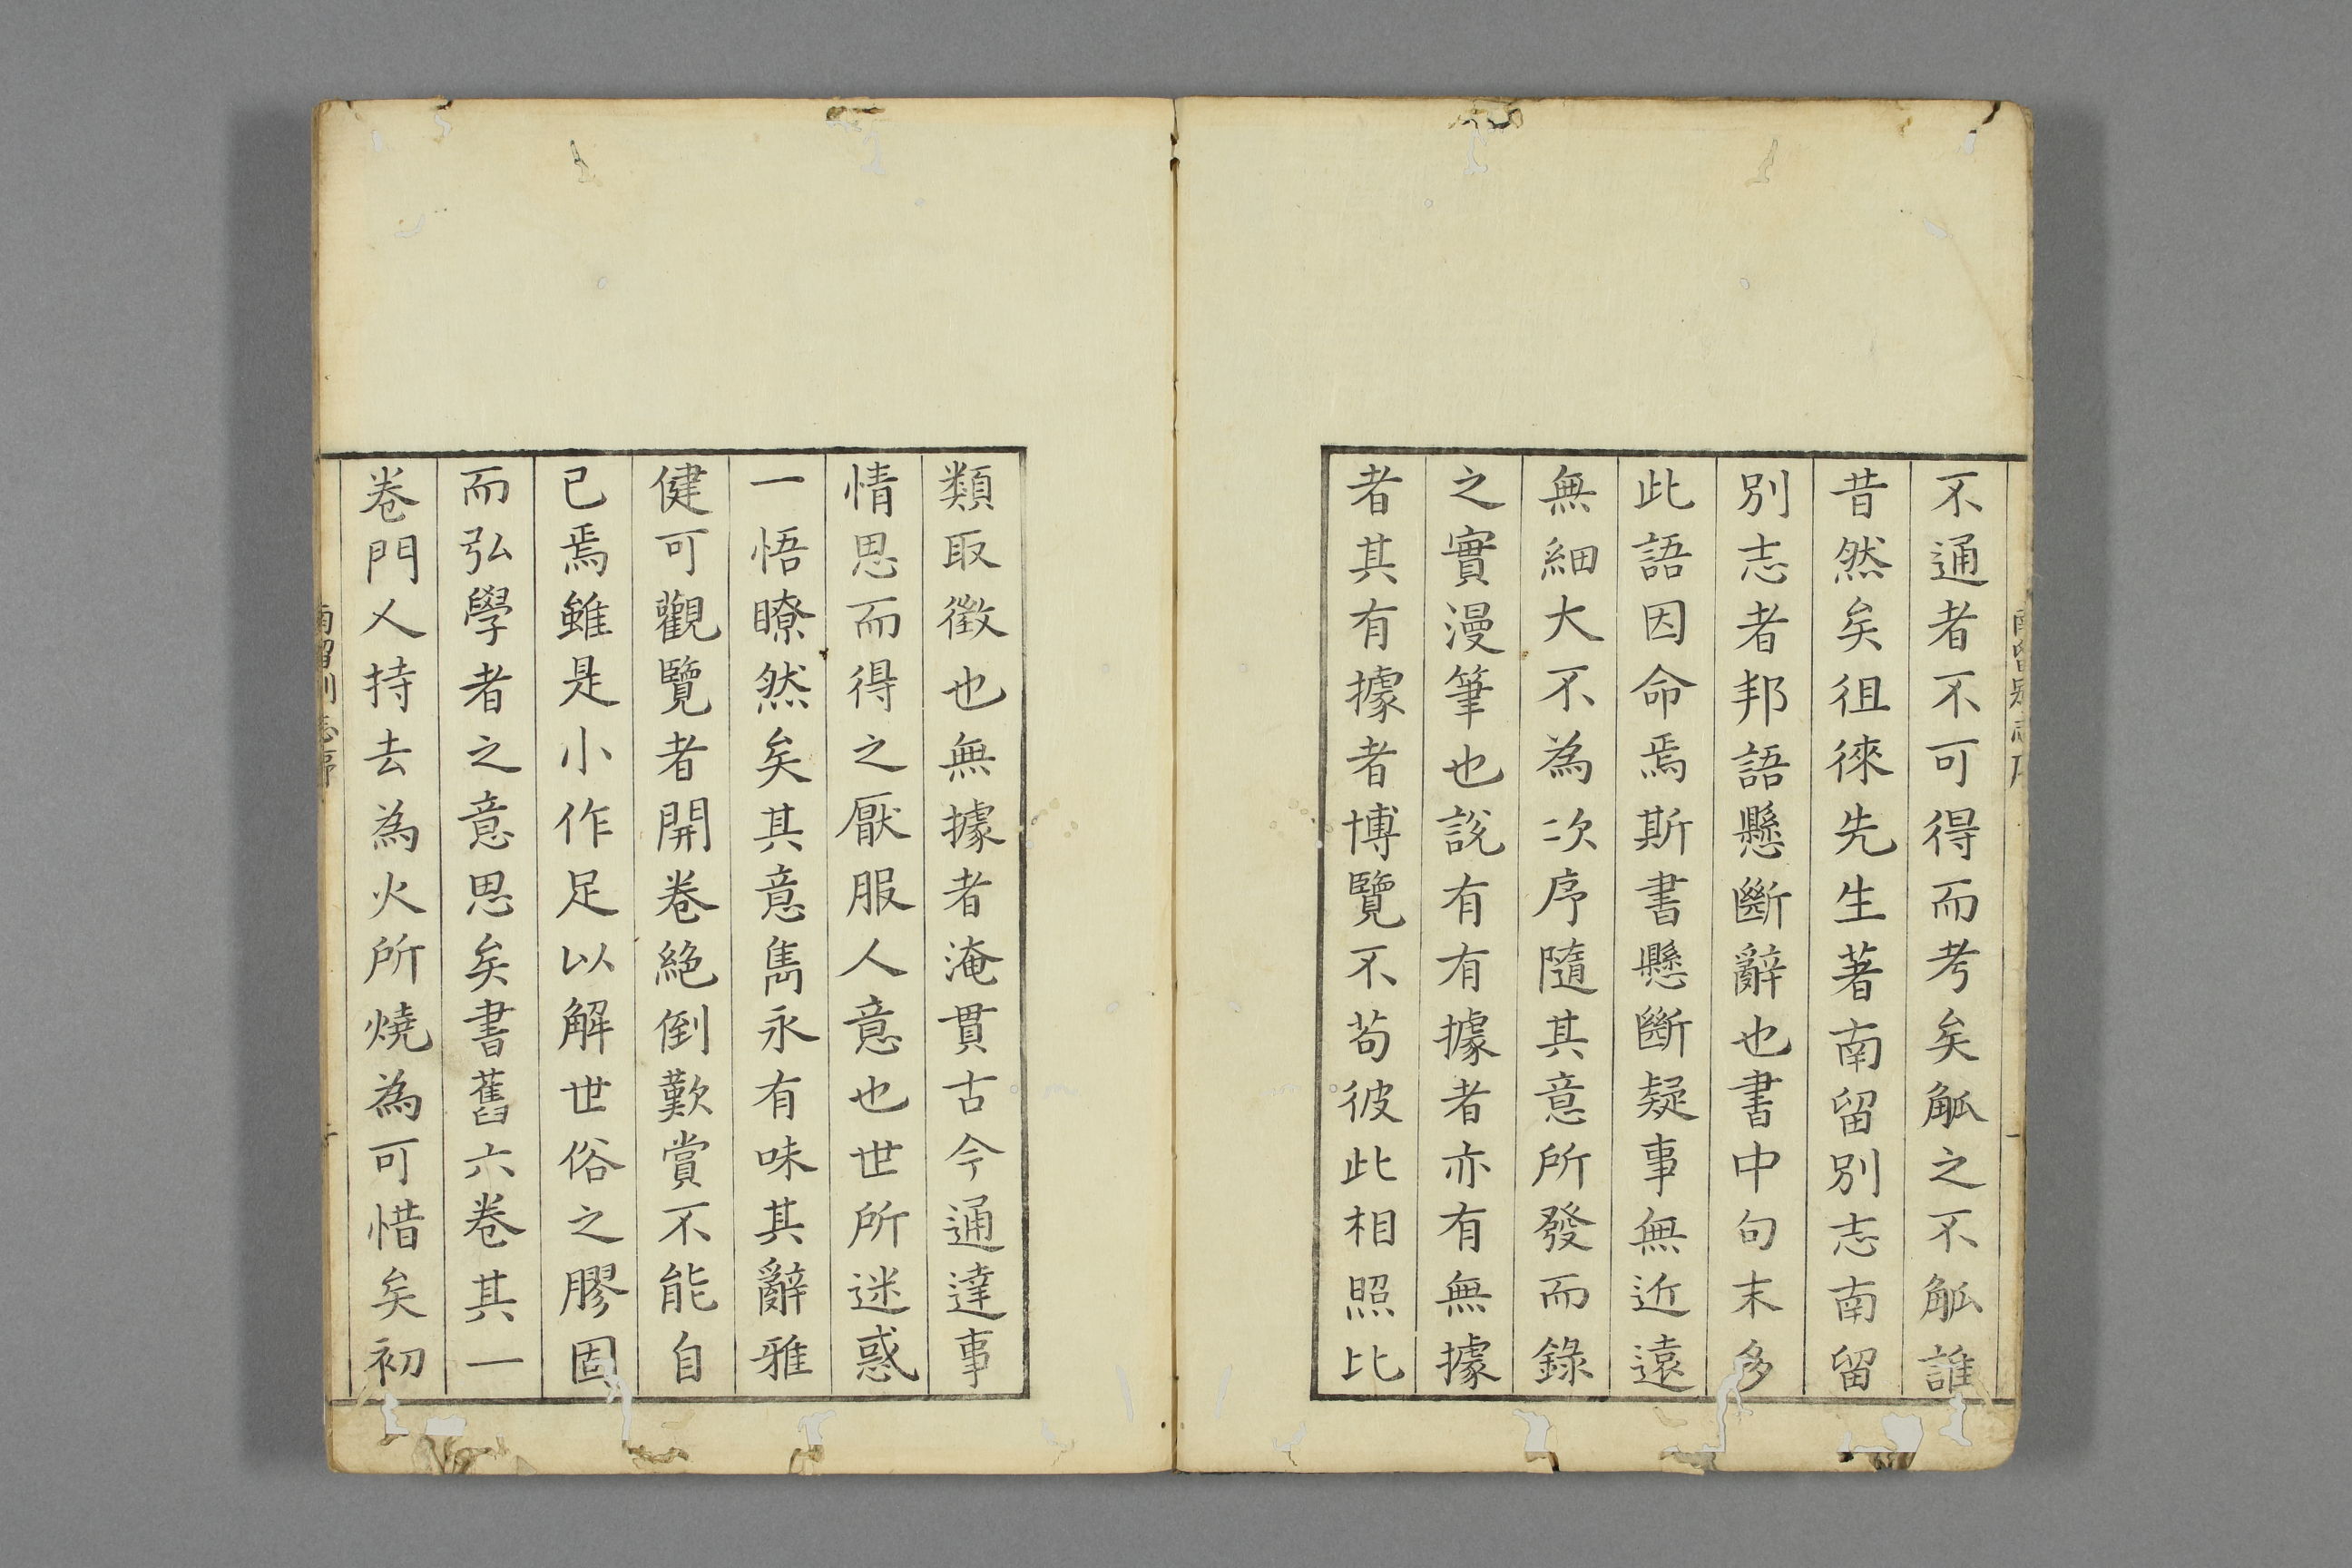 不通者不可得而考矣觚之不觚誰
昔然矣徂徠先生著南留別志南留
別志者邦語懸斷辭也書中句末多
此語因命焉斯書懸斷疑事無近遠
無細大不為次序隨其意所發而錄
之實漫筆也說有有據者亦有無據
者其有據者博覽不苟彼此相照比
類取徵也無據者淹貫古今通達事
情思而得之厭服人意也世所迷惑
一悟瞭然矣其意雋永有味其辭雅
健可觀覽者開卷絕倒歎賞不能自
已焉雖是小作足以解世俗之膠固
而弘學者之意思矣書舊六卷其一
卷門人持去為火所燒為可惜矣初
南留別志序